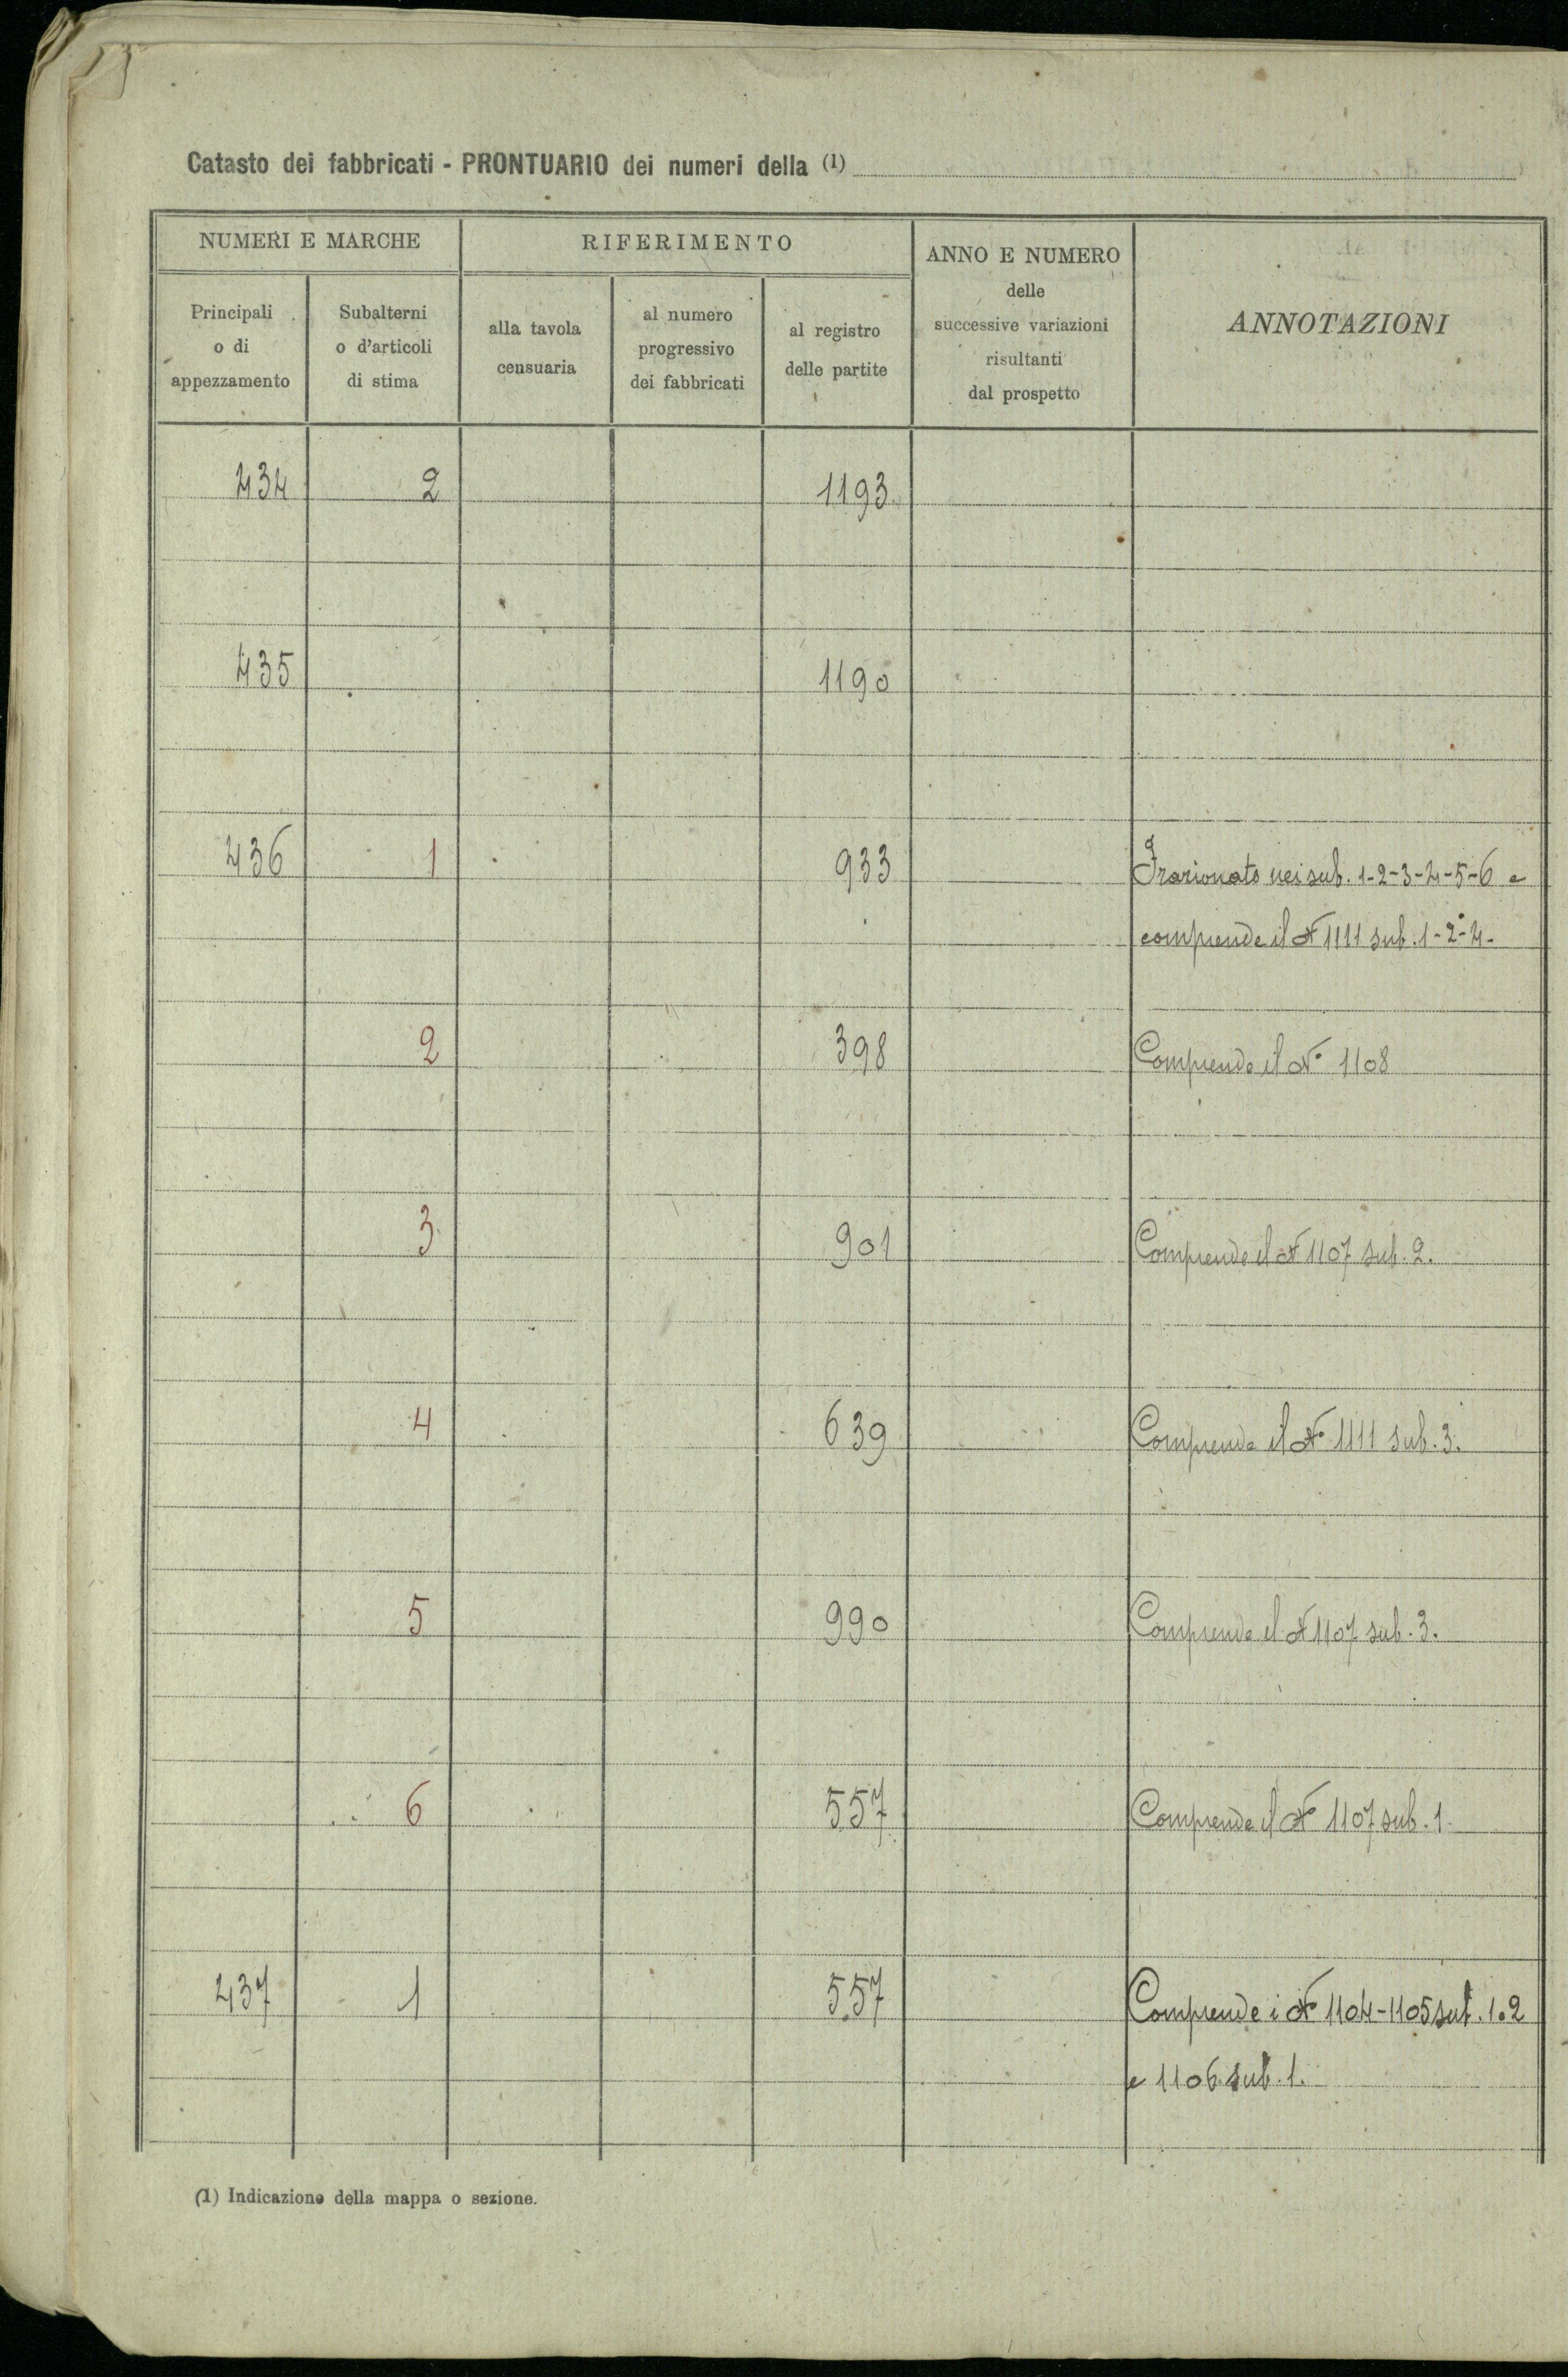 Catasto dei fabbricati - PRONTUARIO dei numeri della (1)
NUMERI E MARCHE
RIFERIMENTO
ANNO E NUMERO
delle
successive variazioni
risultanti
dal prospetto
ANNOTAZIONI
Principali
o di
appezzamento
Subalterni
o d'articoli
di stima
alla tavola
censuaria
al numero
progressivo
dei fabbricati
al registro
delle partite
434 2 1193
435 1190
436 1 933 Frazionato nei sub. 1-2-3-4-5-6 e
comprende il N 1111 sub. 1-2-4-
2 398 Comprende il N° 1108
3 901 Comprende il N 1107 sub. 2.
4 639 Comprende il N° 1111 sub. 3.
5 990 Comprende il N 1107 sub. 3.
6 557 Comprende il N° 1107 sub. 1.
437 1 557 Comprende i N° 1104-1105 sub. 1.2
e 1106 sub. 1.
(1) Indicazione della mappa o sezione.